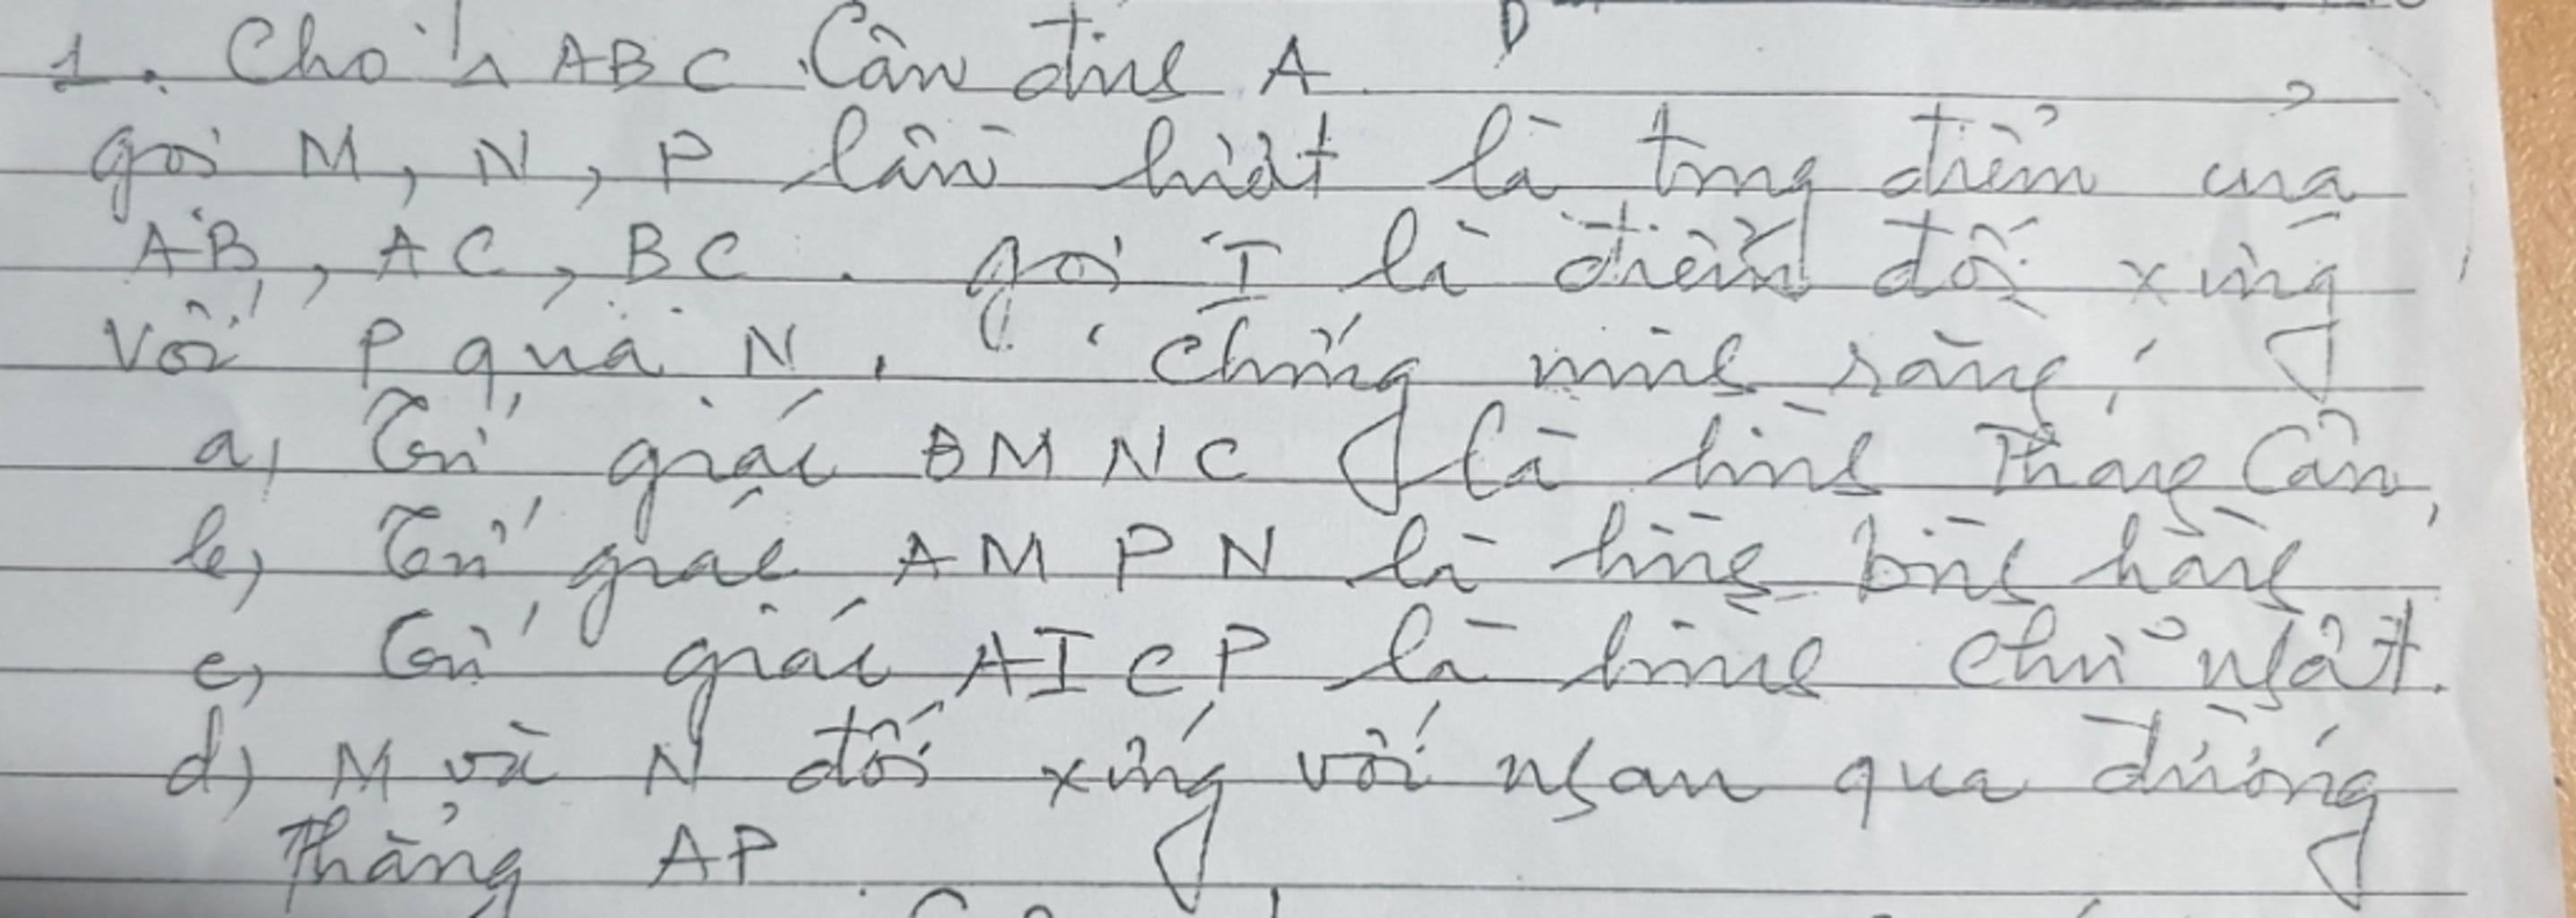 1. Cho △ ABC Cân đỉnh A
gọi M, N, P lần lượt là trung điểm của
AB, AC, BC. gọi I là điểm đối xứng
với P qua N. Chứng minh rằng:
a, Tứ giác BMNC là hình Thang Cân,
b, Tứ giác AMPN là hình bình hành
c, Tứ giác AICP là hình chữ nhật.
d, M và N đối xứng với nhau qua đường
Thẳng AP